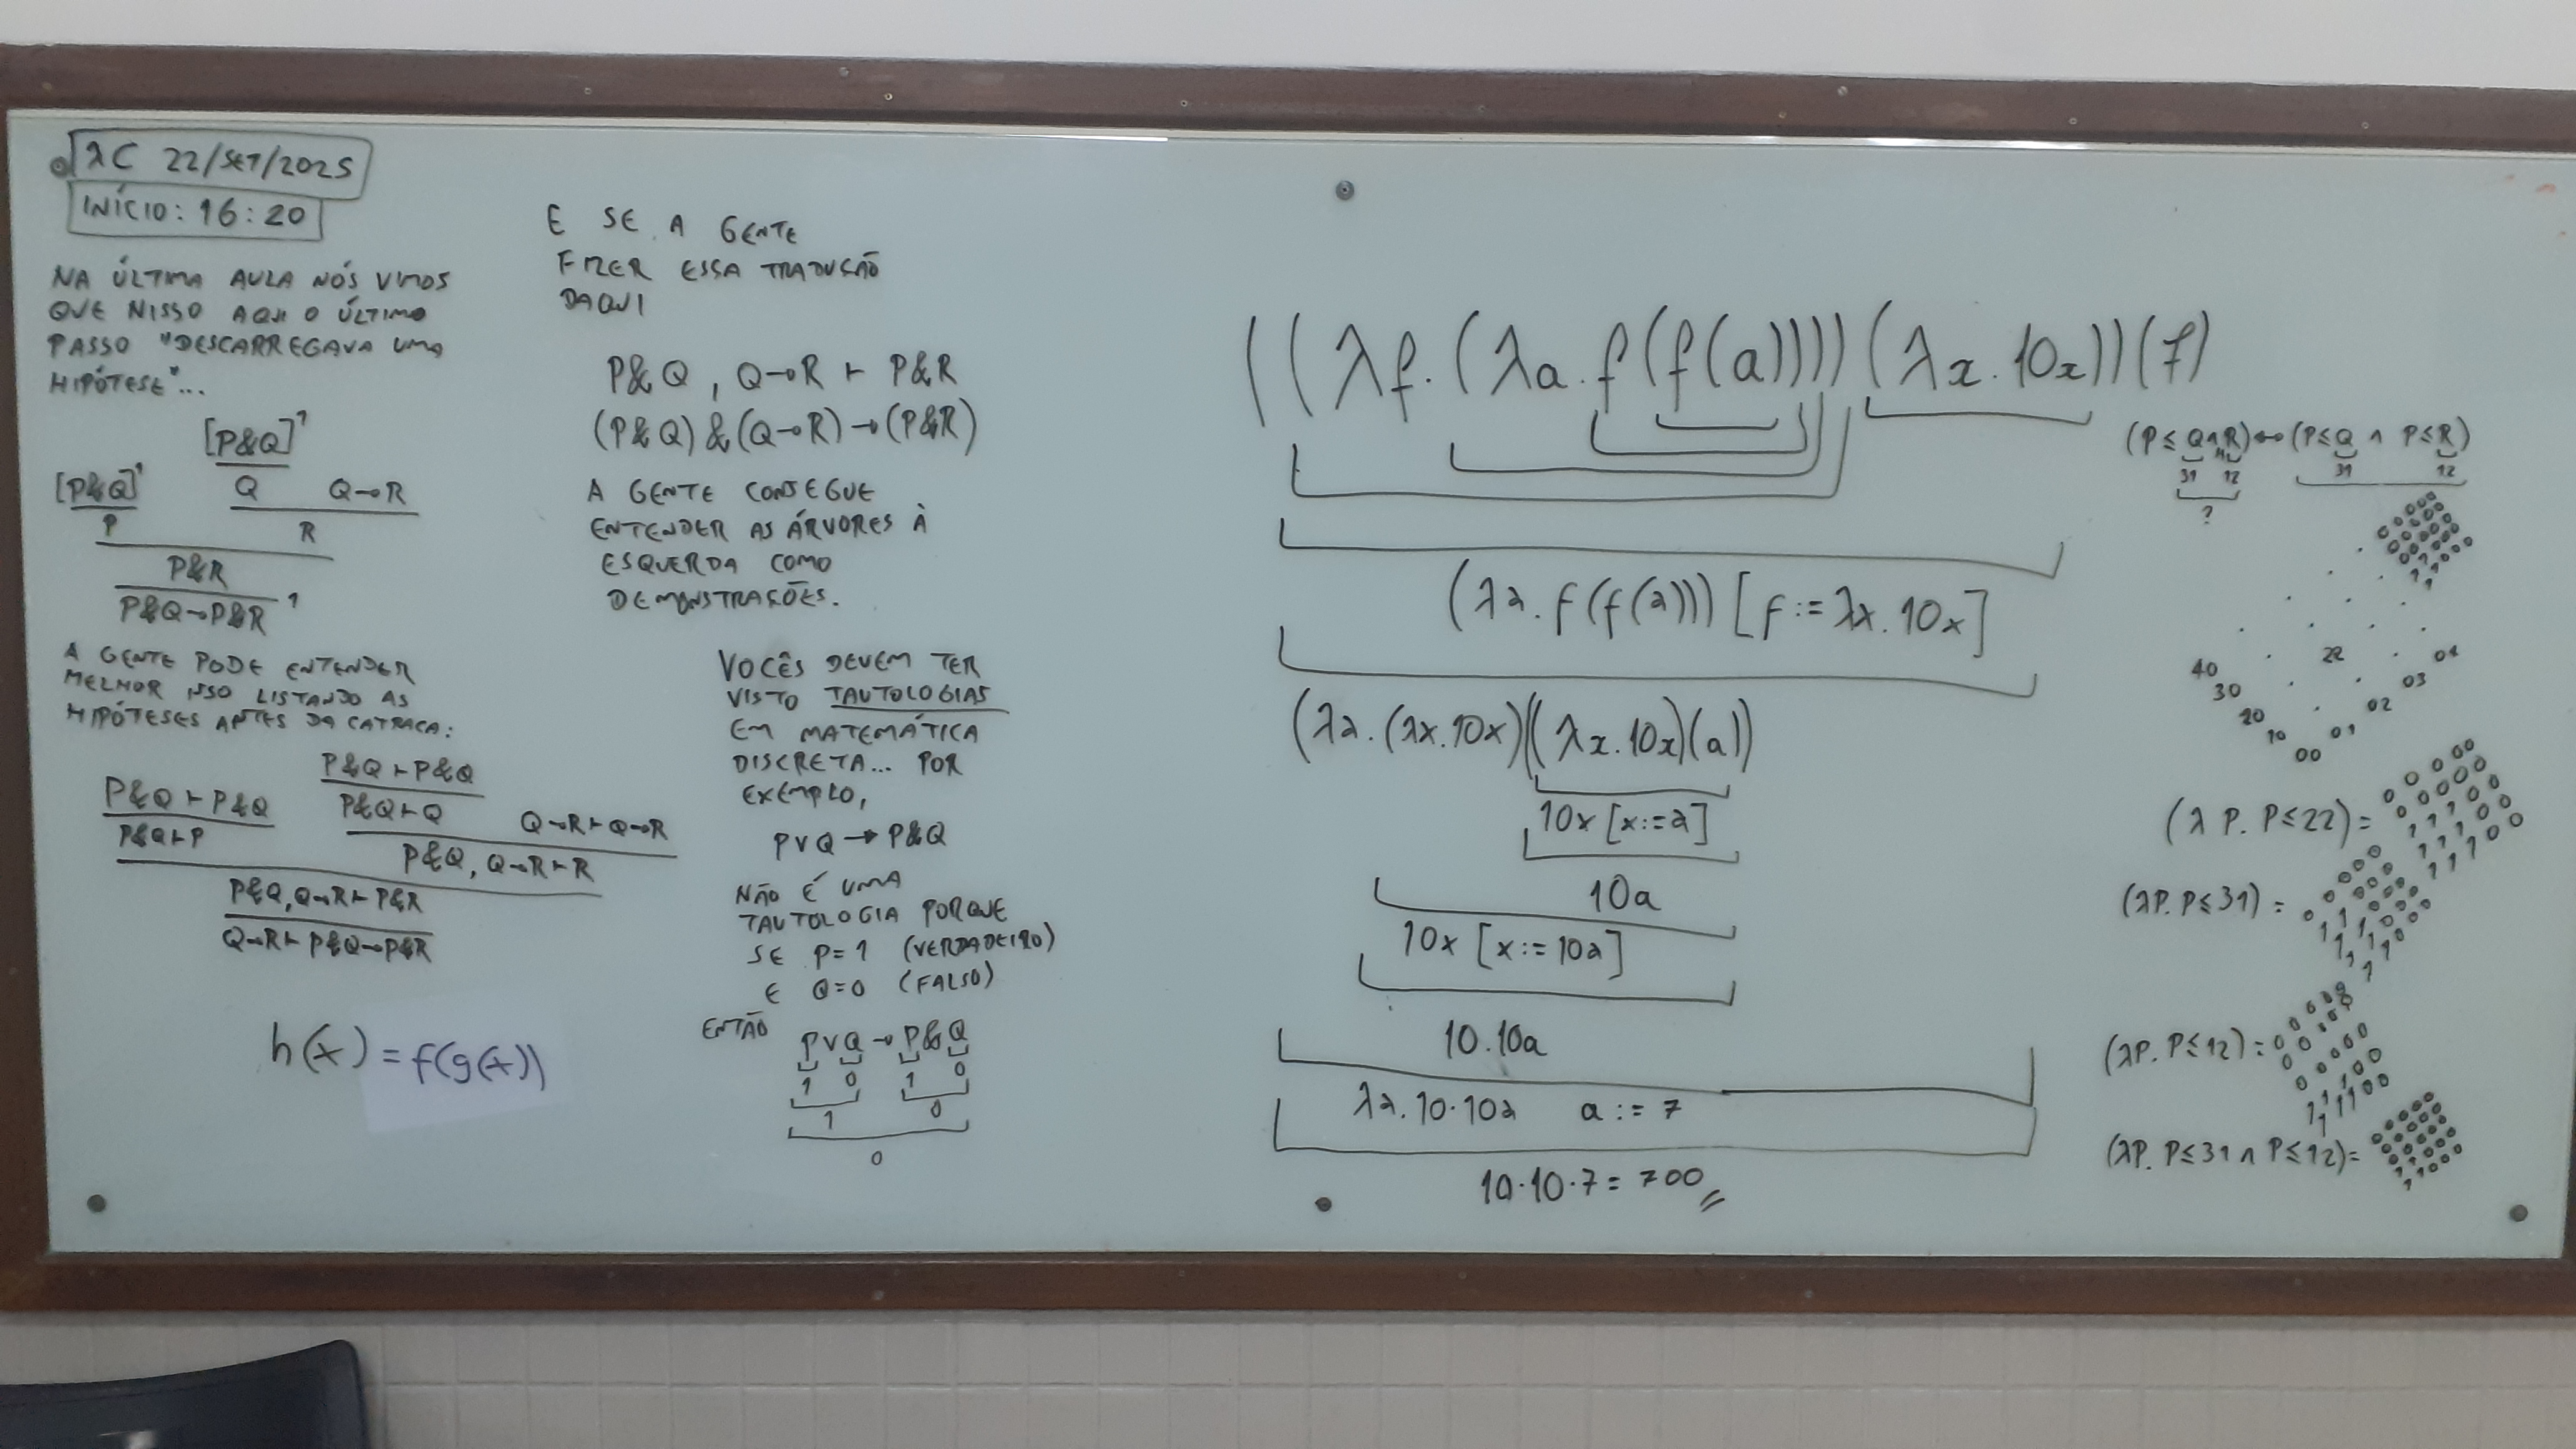 λC 22/SET/2025
INÍCIO: 16:20
NA ÚLTIMA AULA NÓS VIMOS
QUE NISSO AQUI O ÚLTIMO
PASSO "DESCARREGAVA UMA
HIPÓTESE"...
[P&Q]¹
[P&Q]¹ Q Q→R
P R
P&R
P&Q→P&R 1
A GENTE PODE ENTENDER
MELHOR ISSO LISTANDO AS
HIPÓTESES ANTES DA CATRACA:
P&Q⊢P&Q
P&Q⊢P&Q P&Q⊢Q Q→R⊢Q→R
P&Q⊢P P&Q, Q→R⊢R
P&Q, Q→R⊢P&R
Q→R⊢P&Q→P&R
h(x) = f(g(x))
E SE A GENTE
FIZER ESSA TRADUÇÃO
DAQUI
P&Q, Q→R ⊢ P&R
(P&Q)&(Q→R)→(P&R)
A GENTE CONSEGUE
ENTENDER AS ÁRVORES À
ESQUERDA COMO
DEMONSTRAÇÕES.
VOCÊS DEVEM TER
VISTO TAUTOLOGIAS
EM MATEMÁTICA
DISCRETA... POR
EXEMPLO,
P∨Q→P&Q
NÃO É UMA
TAUTOLOGIA PORQUE
SE P=1 (VERDADEIRO)
E Q=0 (FALSO)
ENTÃO P∨Q→P&Q
1 0 1 0
1 0
0
((λf.(λa.f(f(a))))(λx.10x))(7)
(λa.f(f(a)))[f:=λx.10x]
(λa.(λx.10x)((λx.10x)(a))
10x[x:=a]
10a
10x[x:=10a]
10.10a
λa.10·10a a:=7
10·10·7=700
(P≤Q∧R)↔(P≤Q ∧ P≤R)
31 12 31 12
?
40 22 04
30 03
20 02
10 01
00
(λP.P≤22)=
(λP.P≤31)=
(λP.P≤12)=
(λP.P≤31∧P≤12)=